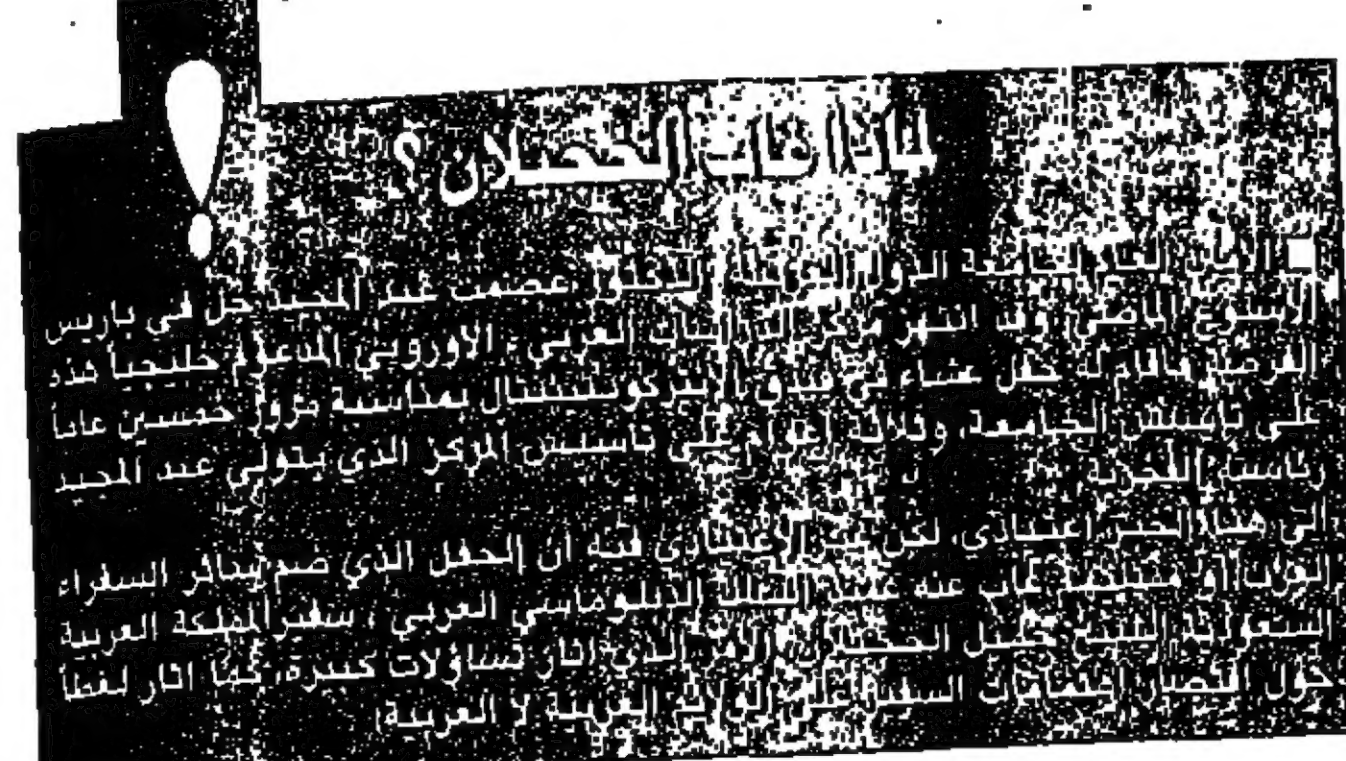 لماذا غاب الحجيلان ؟
الأمين العام لجامعة الدول العربية الدكتور عصمت عبد المجيد حل في باريس
الأسبوع الماضي، وقد انتهز مركز الدراسات العربي ـ الأوروبي المدعوم خليجياً هذه
الفرصة فأقام له حفل عشاء في فندق الإنتركونتيننتال بمناسبة مرور خمسين عاماً
على تأسيس الجامعة، وثلاثة أعوام على تأسيس المركز الذي يتولى عبد المجيد
رئاسته الفخرية.
إلى هنا، الخبر اعتيادي، لكن غير الاعتيادي فيه أن الحفل الذي ضم سائر السفراء
العرب أو ممثليهم غاب عنه عميد السلك الدبلوماسي العربي، سفير المملكة العربية
السعودية الشيخ جميل الحجيلان، الأمر الذي أثار تساؤلات كبيرة، كما أثار لغطاً
حول اقتصار اهتمامات السفير على الغربية لا العربية!